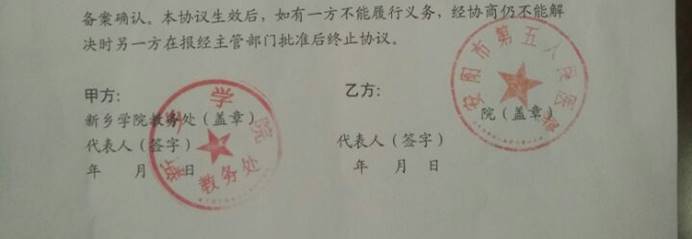 备案确认。本协议生效后，如有一方不能履行义务，经协商仍不能解
决时另一方在报经主管部门批准后终止协议。
甲方：
新乡学院教务处（盖章）
代表人（签字）
年 月 日
新乡学院
教务处
乙方：
院（盖章）
代表人（签字）
年 月 日
安阳市第五人民医院